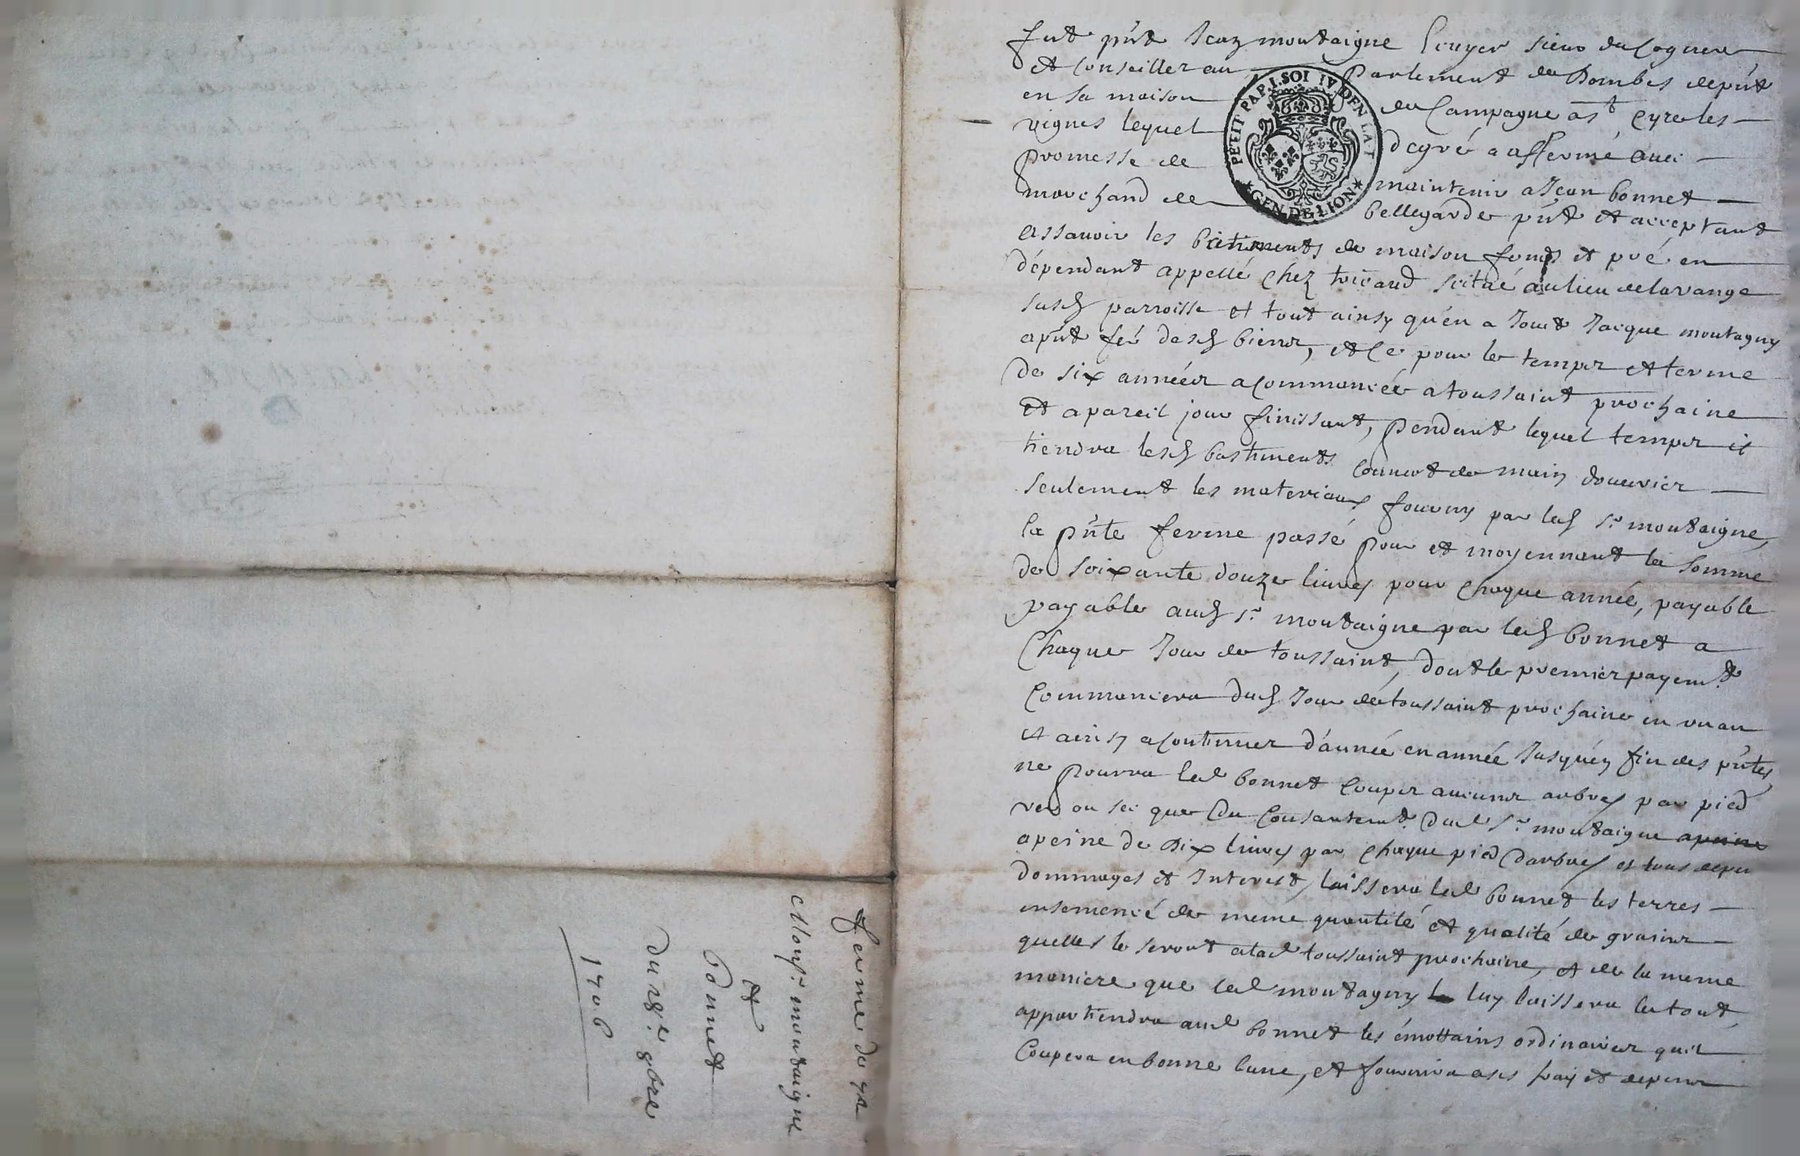 fut pñt Jean montaigne Ecuyer sieur du
et Conseiller au Parlement de Dombes depñt
en sa maison de Campagne a st Cyr les
vignes lequel degré a affermé avec
promesse de maintenir a Jean bonnet
marchand de bellegarde pñt et acceptant
assavoir les batiments de maison fonds et pré en
dépendant appellé Chez tricaud scitué au lieu delavange
susd parroisse et tout ainsy qu'en a Jouit Jacque montagny
apñt fer desd biens, et Ce pour le temps et terme
de six années a Commencée a toussaint prochaine
et apareil jour finissant, pendant lequel temps il
tiendra lesd bastiments Couvert de main douvrier
seulement les materiaux fourny par led sr. montaigne,
la pñte ferme passé pour et moyennant la somme
de soixante douze livres pour Chaque année, payable
payable aud sr. montaigne par led bonnet a
Chaque Jour de toussaint, dont le premier payemt.
Commencera dud Jour de toussaint prochaine en un an
et ainsy a Continuer d'année en année Jusqu'en fin des pñtes
ne pourra led bonnet Couper aucuns arbres par pied
verd ou sec que du Consantemt. dud sr. montaigne apeine
apeine de Dix livres par Chaque pied darbres et tous depu
dommages et Interest, laissera led bonnet les terres
ensemencé de meme quantité et qualité de grains
quelles le seront alad toussaint prochaine, et de la meme
maniere que led montagny luy laissera le tout,
appartiendra aud bonnet les émottains ordinaires quil
Coupera en bonne lune, et fournira a ses fraix et depens
PETIT PAP. 1. SOL IV DEN LA F
GEN. DE LION
ferme de
Monsr. montaigne
et
Bonnet
Du 28e. 9bre
1706